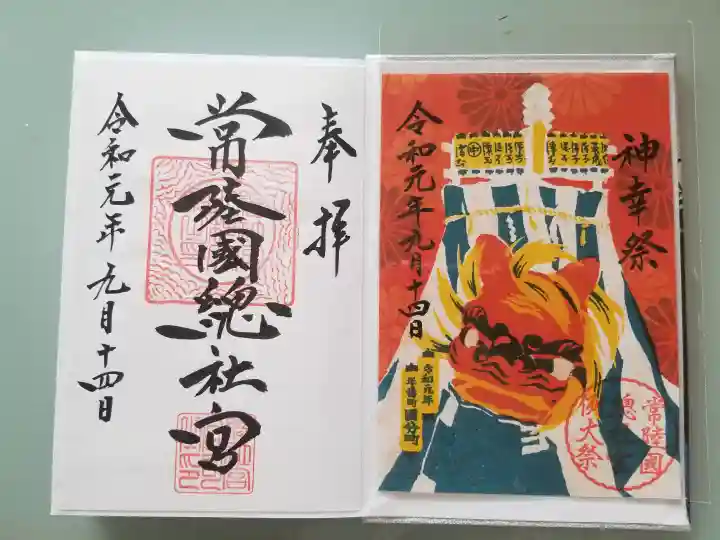 奉拝
常陸國總社宮
令和元年九月十四日
神幸祭
令和元年九月十四日
令和元年
年番町國分町
常陸國
總
大祭